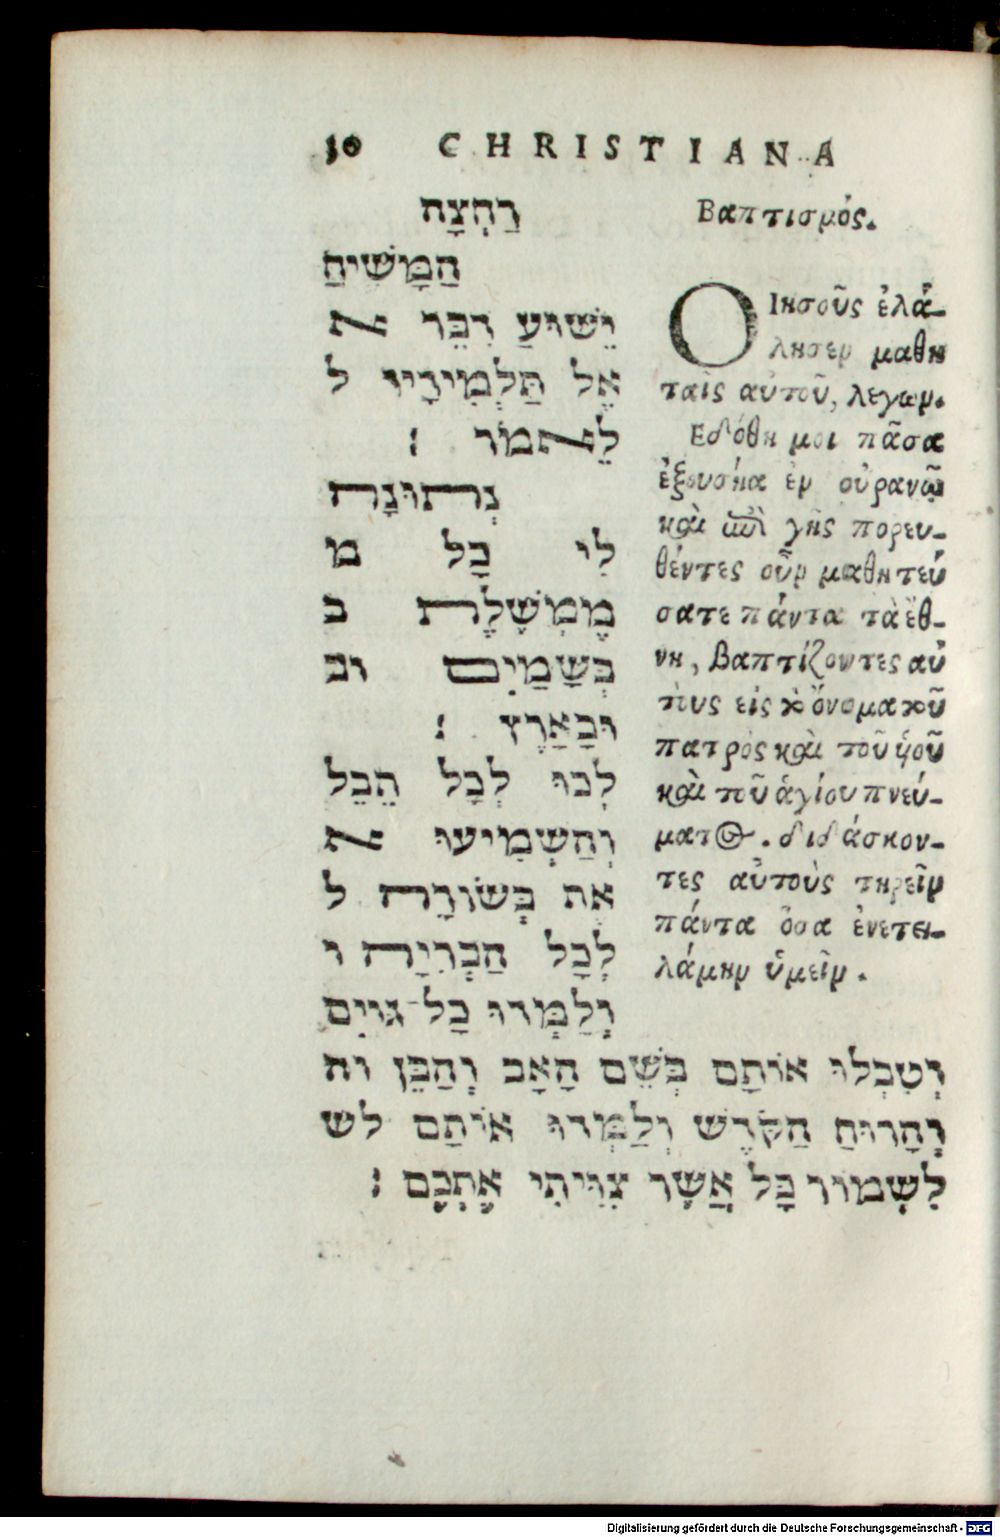 30 CHRISTIANA
רַחְצָה
הַמָּשִׁיחַ
יֵשׁוּעַ דִּבֵּר א
אֶל תַּלְמִידָיו ל
לֵאמֹר ׃
נְתוּנָה
לִי כָל מ
מֶמְשֶׁלֶת ב
בְּשָׁמַיִם וב
וּבָאָרֶץ ׃
לְכוּ לְכָל הֵבֵל
וְהַשְׁמִיעוּ א
אֶת בְּשׂוֹרָה ל
לְכָל הַבְּרִיָה ו
וְלַמְּדוּ כָל־גּוֹיִם
וְטִבְלוּ אוֹתָם בְּשֵׁם הָאָב וְהַבֵּן וה
וְהָרוּחַ הַקֹּדֶשׁ וְלַמְּדוּ אוֹתָם לש
לִשְׁמוֹר כָּל אֲשֶׁר צִוִּיתִי אֶתְכֶם ׃
Βαπτισμός.
Ο Ιησοῦς ἐλά-
λησεν μαθη
ταῖς αὐτοῦ, λεγων.
Εδόθη μοι πᾶσα
ἐξουσία ἐν οὐρανῷ
καὶ ἐπὶ γῆς πορευ-
θέντες οὖν μαθητεύ
σατε πάντα τὰ ἔθ-
νη, βαπτίζοντες αὐ
τοὺς εἰς τὸ ὄνομα τοῦ
πατρὸς καὶ τοῦ ὑιοῦ
καὶ τοῦ ἁγίου πνεύ-
ματος. διδάσκον-
τες αὐτοὺς τηρεῖν
πάντα ὅσα ἐνετει-
λάμην ὑμεῖν.
Digitalisierung gefördert durch die Deutsche Forschungsgemeinschaft - DFG